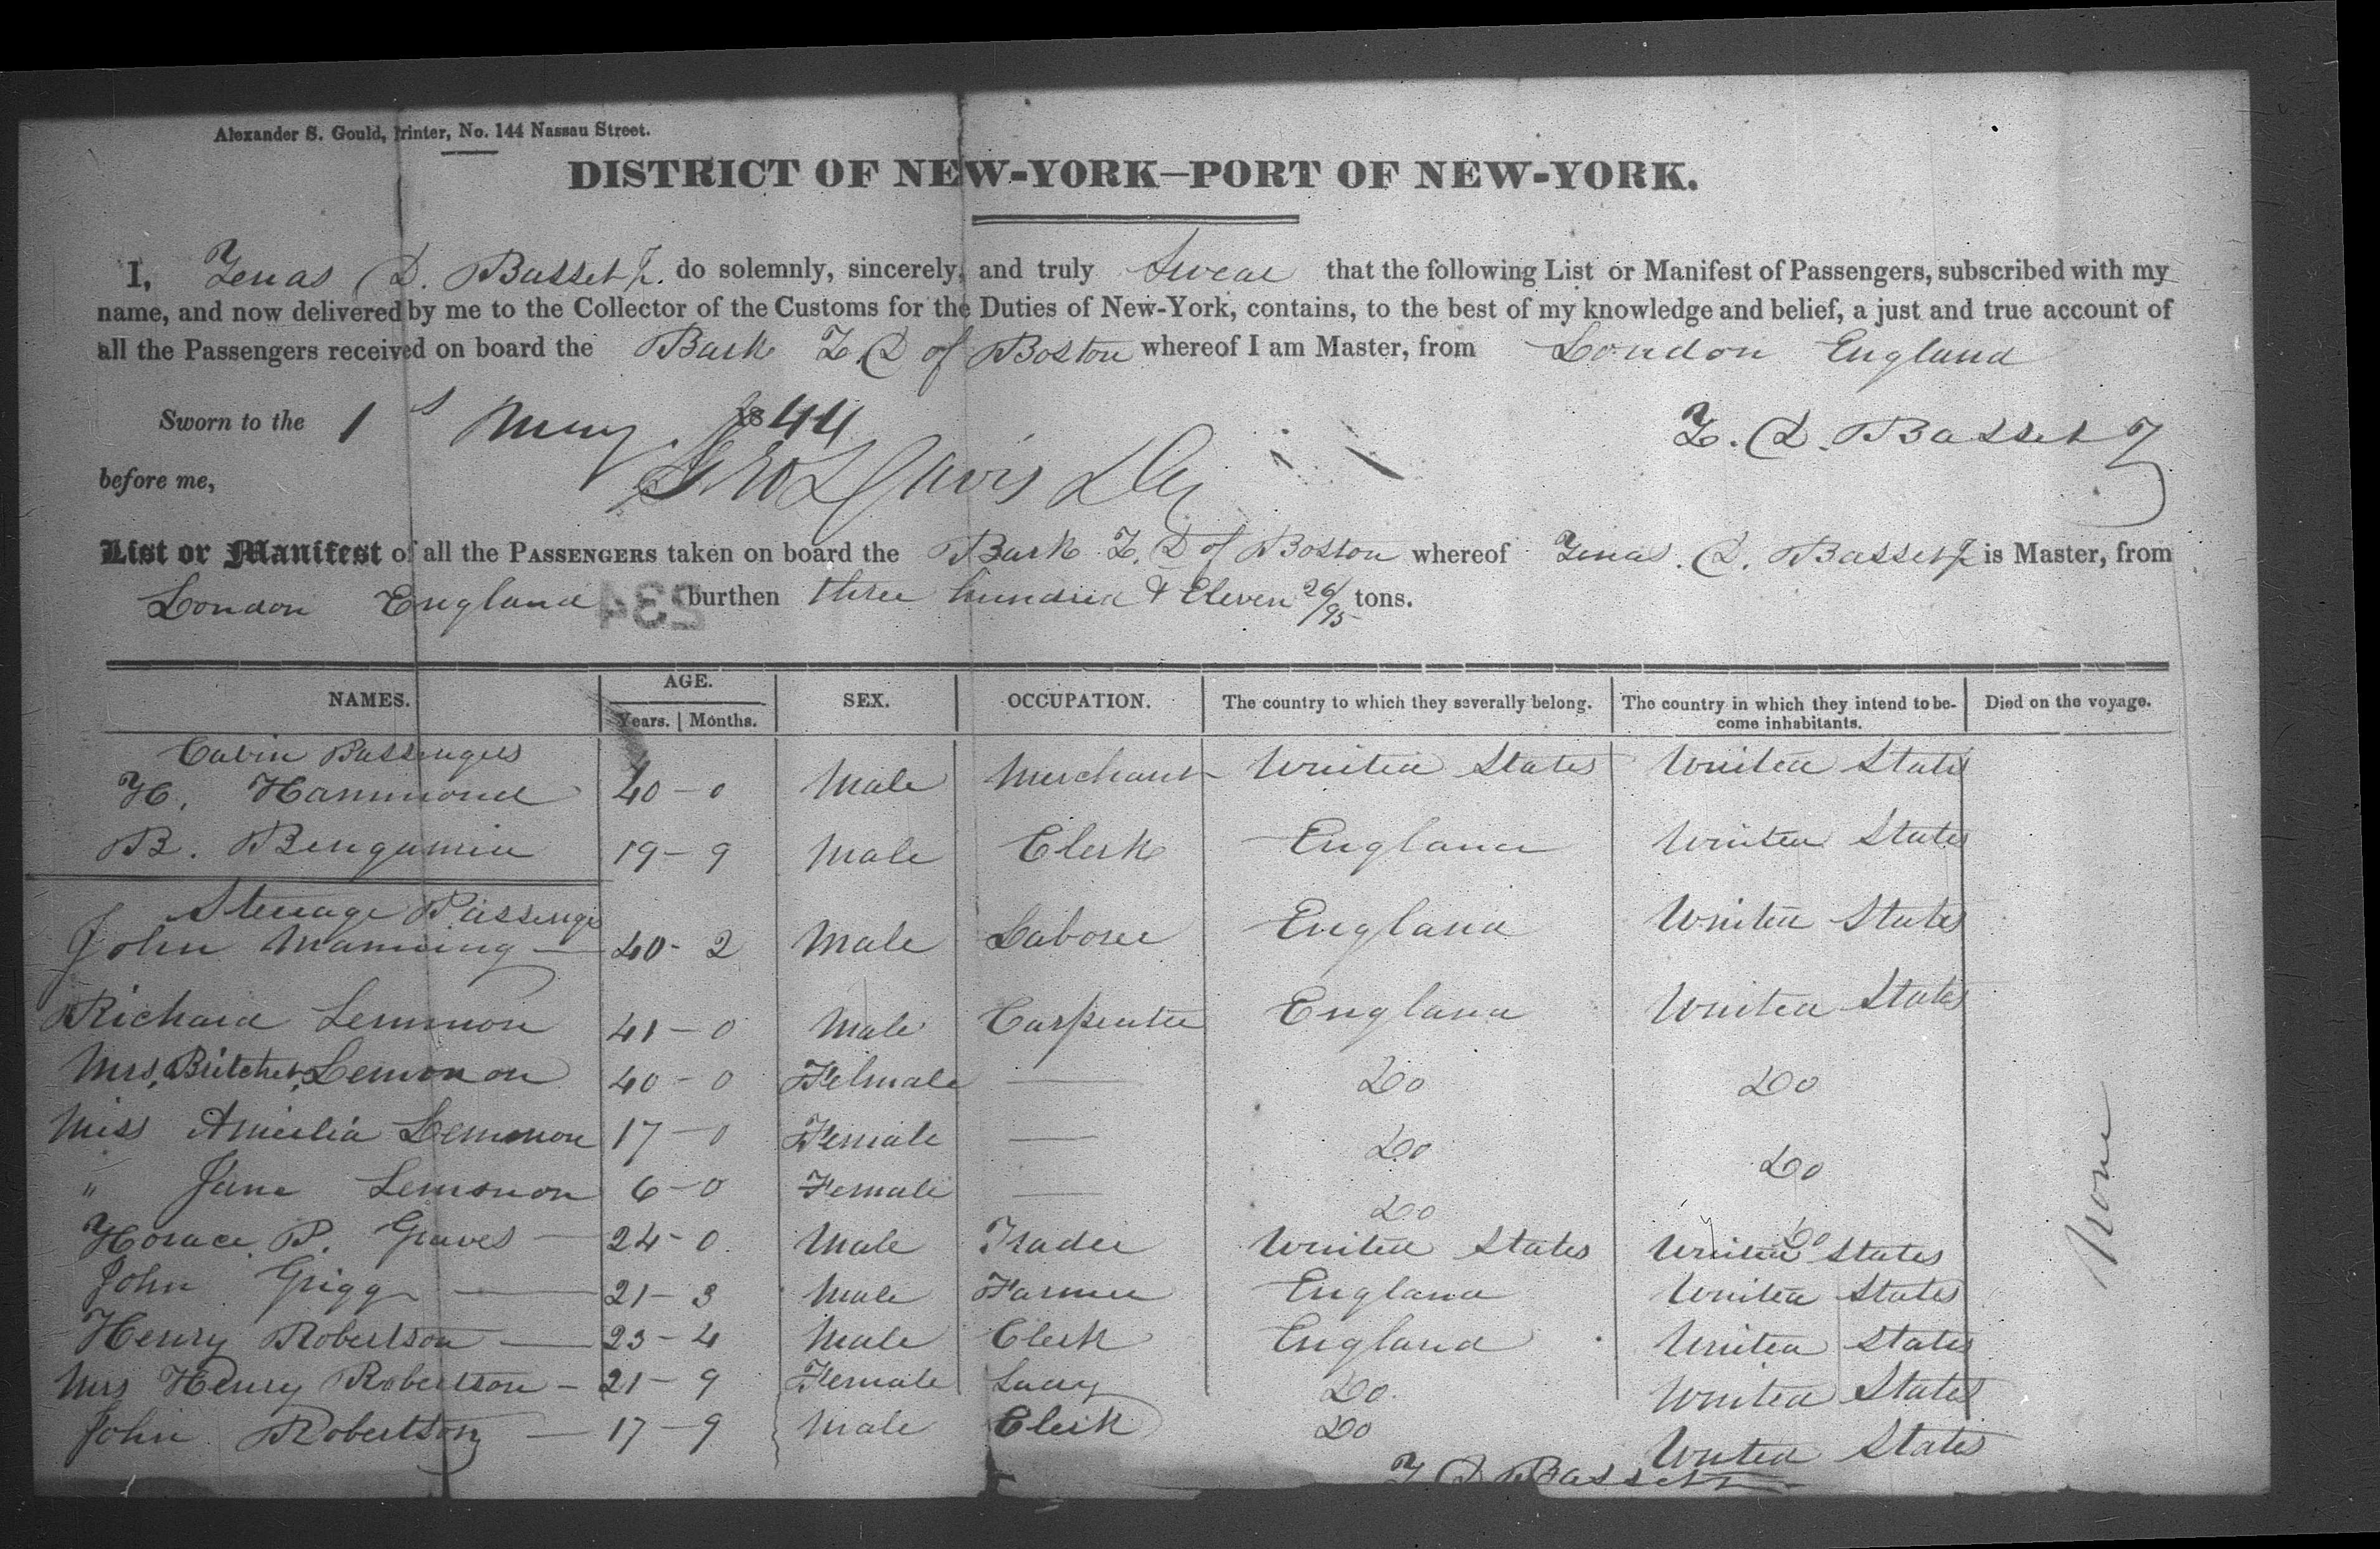 Alexander S. Gould, Printer, No. 144 Nassau Street.
DISTRICT OF NEW-YORK—PORT OF NEW-YORK.
I, Zenas D. Basset Jr. do solemnly, sincerely, and truly Swear that the following List or Manifest of Passengers, subscribed with my
name, and now delivered by me to the Collector of the Customs for the Duties of New-York, contains, to the best of my knowledge and belief, a just and true account of
all the Passengers received on board the Bark Z. D of Boston whereof I am Master, from London England
Sworn to the 1st May 1844 Z. D. Basset Jr
before me, Davis
List or Manifest of all the PASSENGERS taken on board the Bark Z. D of Boston whereof Zenas. D. Basset Jr is Master, from
London England 234 burthen three hundred & Eleven 26/95 tons.
NAMES. AGE. SEX. OCCUPATION. The country to which they severally belong. The country in which they intend to be- Died on the voyage.
Years. Months. come inhabitants.
Cabin Passengers
H. Hammond 40 - 0 Male Merchant United States United States
B. Bengamin 19 - 9 Male Clerk England United States
Sterage Passenge
John Manning 40 - 2 Male Laborer England United States
Richard Lemmon 41 - 0 Male Carpenter England United States
Mrs, Britchet Lemmon 40 - 0 Felmale — Do Do
Miss Amielia Lemmon 17 - 0 Female — Do Do
" Jane Lemmon 6 - 0 Female — Do Do
Horace. P. Graves 24 - 0 Male Trader United States United States
John Grigg 21 - 3 Male Farmer England United States
Henry Robertson 23 - 4 Male Clerk England United States
Mrs Henry Robertson - 21 - 9 Female Lady Do United States
John Robertson 17 - 9 Male Clerk Do United States
None
Z D Bassett